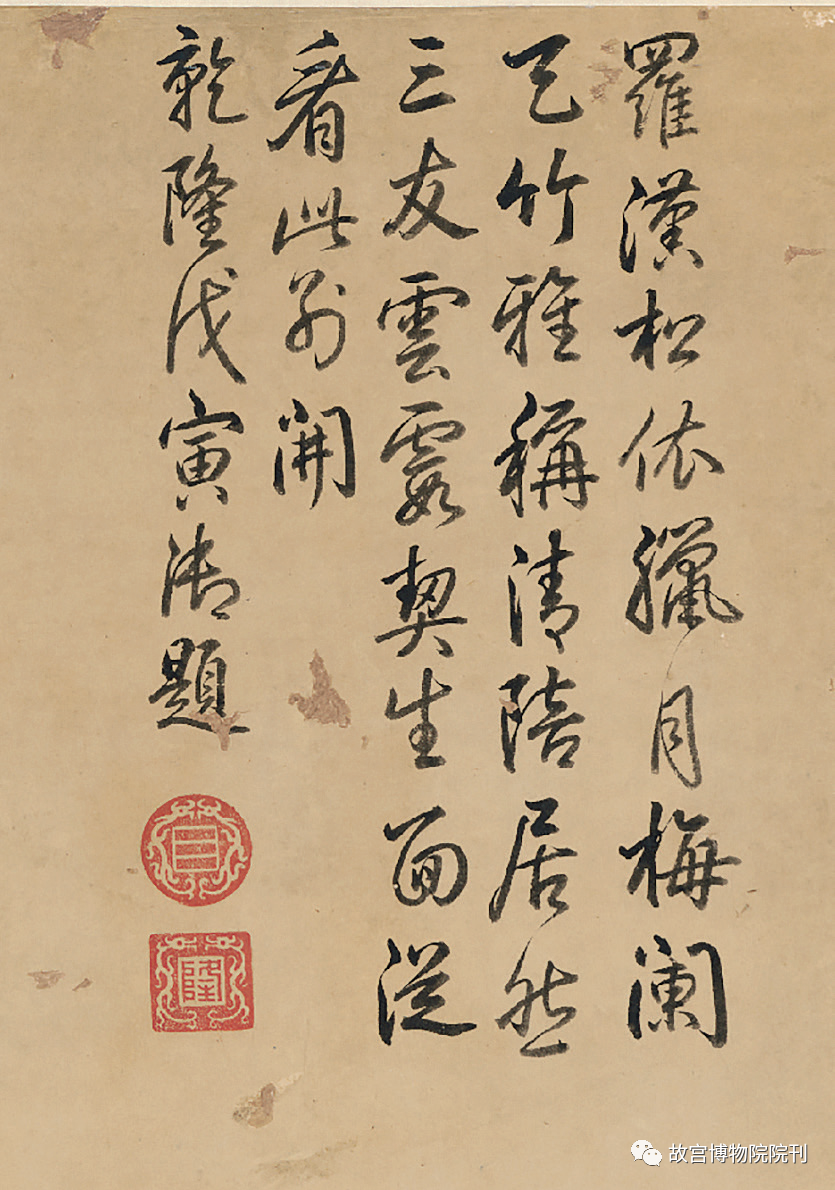 羅漢松依臘月梅闌
天竹雅稱清陪居然
三友雲霞契生面從
看此別開
乾隆戊寅御題
☰
隆
故宫博物院院刊